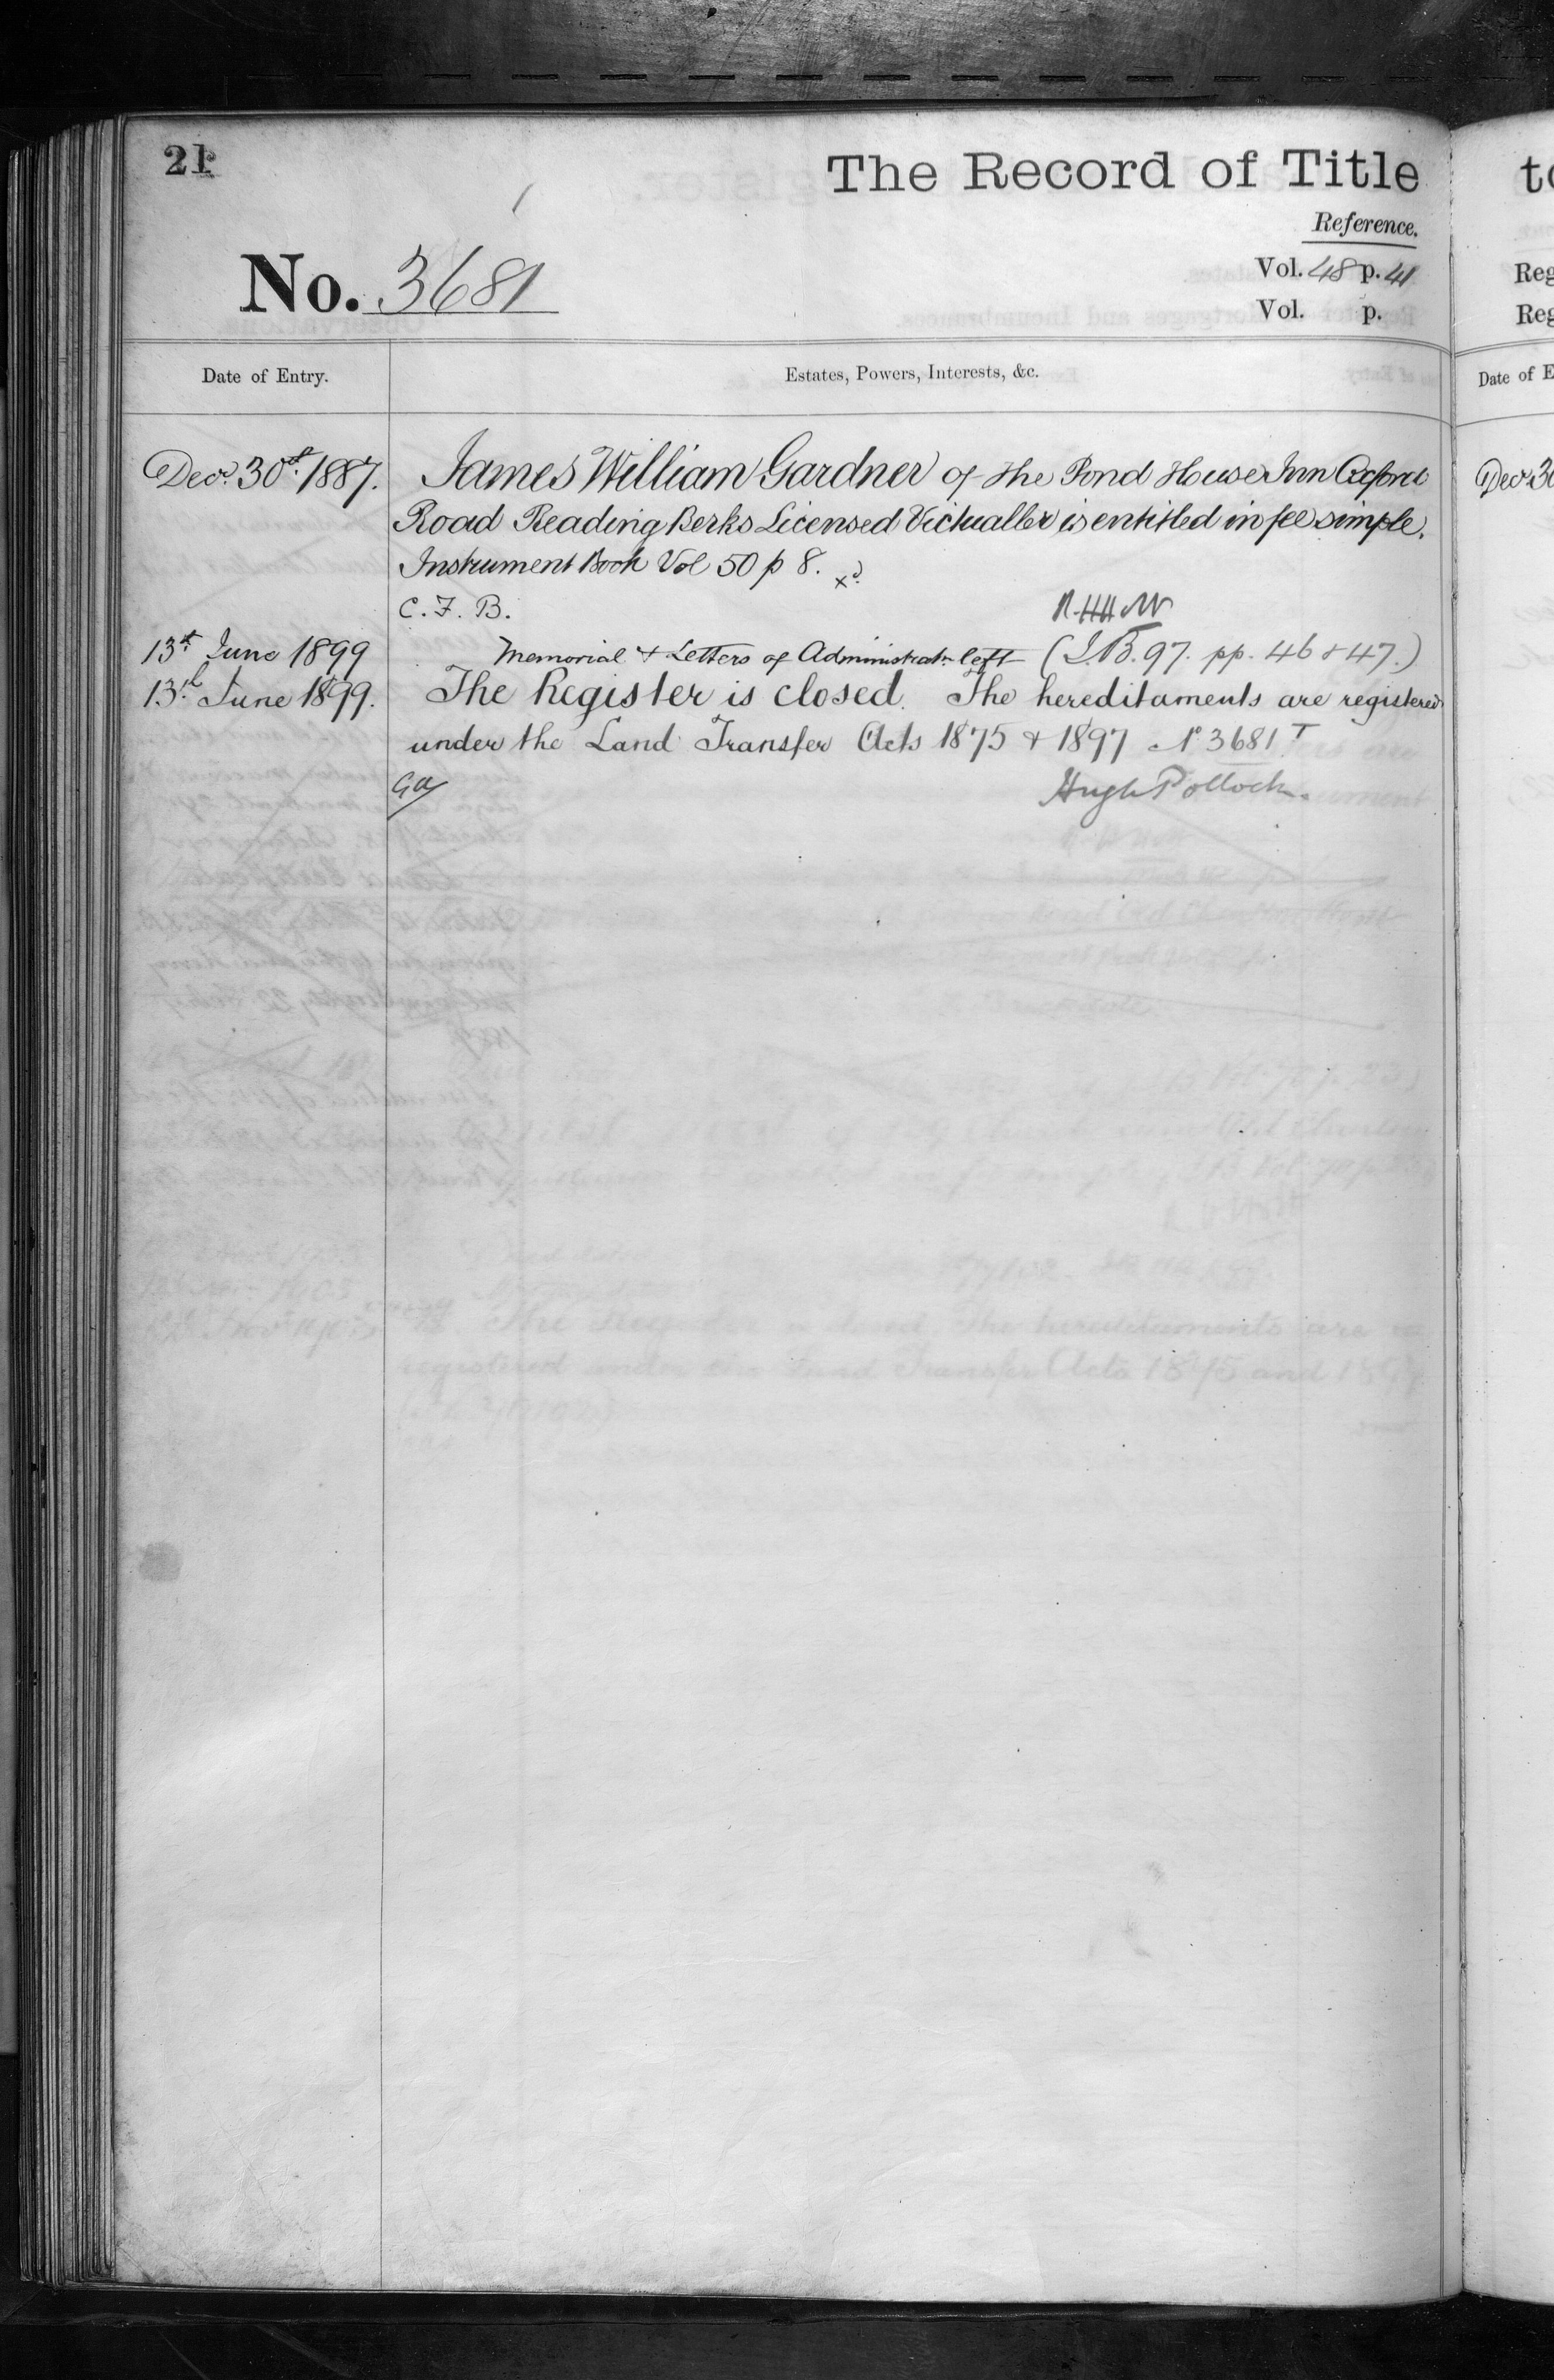 21
The Record of Title
Reference.
No. 3681
Vol. 48 p. 41
Vol. p.
Date of Entry.
Estates, Powers, Interests, &c.
Decr. 30th. 1887.
James William Gardner of the Pond House Inn Oxford
Road Reading Berks Licensed Victualler is entitled in fee simple.
Instrument Book Vol 50 p 8. xd.
C. F. B.
13th June 1899
Memorial & Letters of Administratn. left (I.B. 97. pp. 46 & 47.)
13th June 1899.
The Register is closed. The hereditaments are registered
under the Land Transfer Acts 1875 & 1897 No 3681T
Hugh Pollock.
to
Reg
Reg
Date of E
Decr. 30